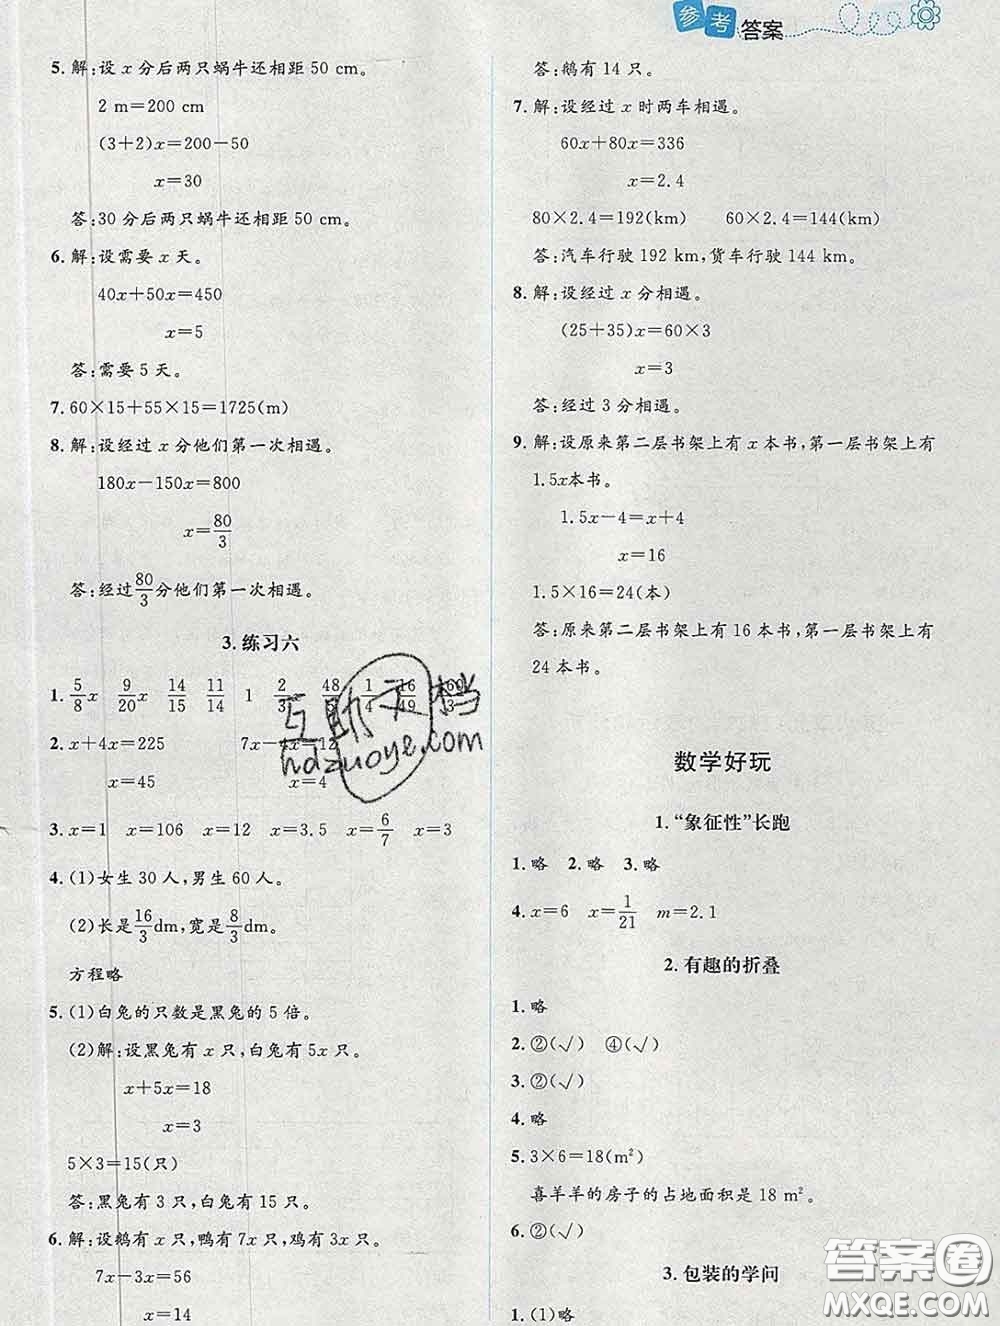 参考答案
5. 解:设 x 分后两只蜗牛还相距 50 cm。
2 m=200 cm
(3+2)x=200-50
x=30
答:30 分后两只蜗牛还相距 50 cm。
6. 解:设需要 x 天。
40x+50x=450
x=5
答:需要 5 天。
7. 60×15+55×15=1725(m)
8. 解:设经过 x 分他们第一次相遇。
180x-150x=800
x=80/3
答:经过80/3分他们第一次相遇。
3. 练习六
1. 5/8x 9/20x 14/15 11/14 1 2/3 48/5 1/4 16/49
2. x+4x=225 7x-4x=12
x=45 x=4
3. x=1 x=106 x=12 x=3.5 x=6/7 x=3
4. (1)女生 30 人,男生 60 人。
(2)长是16/3dm,宽是8/3dm。
方程略
5. (1)白兔的只数是黑兔的 5 倍。
(2)解:设黑兔有 x 只,白兔有 5x 只。
x+5x=18
x=3
5×3=15(只)
答:黑兔有 3 只,白兔有 15 只。
6. 解:设鹅有 x 只,鸭有 7x 只,鸡有 3x 只。
7x-3x=56
x=14
答:鹅有 14 只。
7. 解:设经过 x 时两车相遇。
60x+80x=336
x=2.4
80×2.4=192(km) 60×2.4=144(km)
答:汽车行驶 192 km,货车行驶 144 km。
8. 解:设经过 x 分相遇。
(25+35)x=60×3
x=3
答:经过 3 分相遇。
9. 解:设原来第二层书架上有 x 本书,第一层书架上有
1.5x本书。
1.5x-4=x+4
x=16
1.5×16=24(本)
答:原来第二层书架上有 16 本书,第一层书架上有
24 本书。
数学好玩
1. “象征性”长跑
1. 略 2. 略 3. 略
4. x=6 x=1/21 m=2.1
2. 有趣的折叠
1. 略
2. ②(√) ④(√)
3. ②(√)
4. 略
5. 3×6=18(m²)
喜羊羊的房子的占地面积是 18 m²。
6. ②(√)
3. 包装的学问
1. (1)略
互助文档
hdzuoye.com
答案圈
MXQE.COM